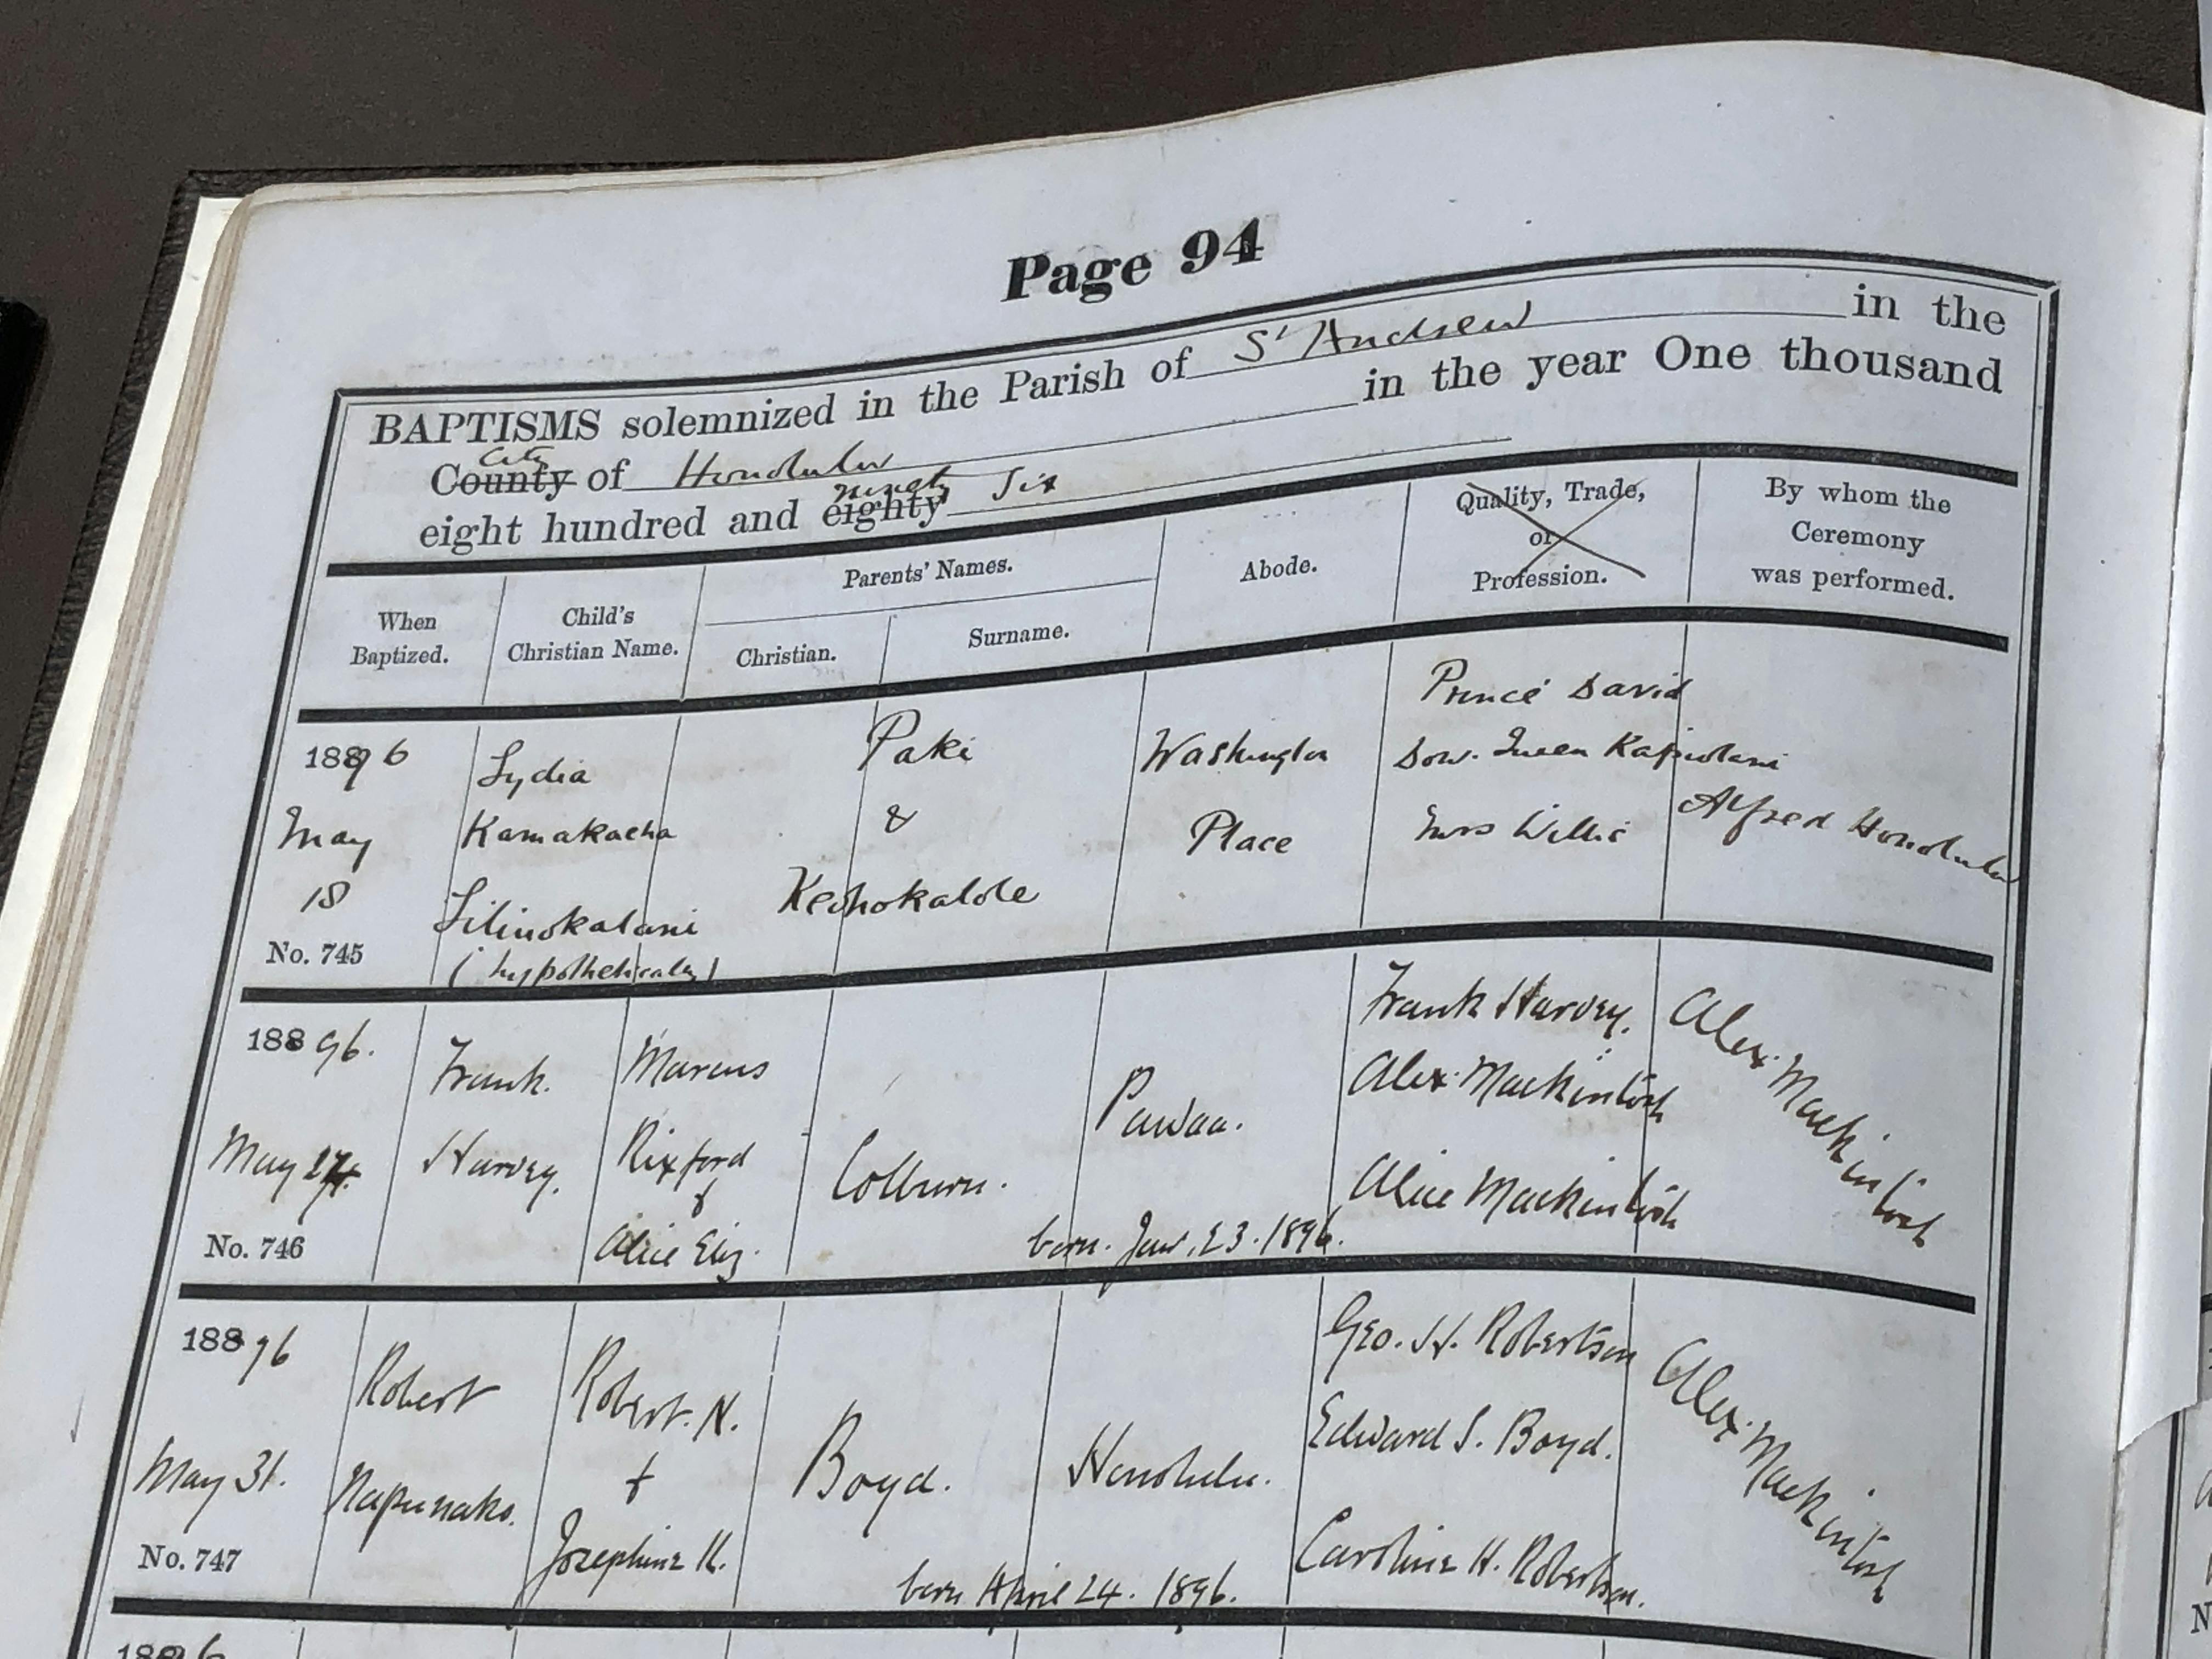 Page 94
BAPTISMS solemnized in the Parish of St Andrew in the
City
County of Honolulu in the year One thousand
ninety Six
eight hundred and eighty
When Baptized.
Child's Christian Name.
Parents' Names.
Christian.
Surname.
Abode.
Quality, Trade,
or
Profession.
By whom the
Ceremony
was performed.
1896
May
18
No. 745
Lydia
Kamakaeha
Liliuokalani
(hypothetically)
Paki
&
Keohokalole
Washington
Place
Prince David
Dow. Queen Kapiolani
Mrs Willis
Alfred Honolulu
188 96.
May 27.
No. 746
Frank.
Harvey.
Marcus
Rixford
&
Alice Eliz.
Colburn.
Pawaa.
born. Jan. 23. 1896.
Frank Harvey.
Alex. Mackintosh
Alice Mackintosh
Alex. Mackintosh
188 96
May 31.
No. 747
Robert
Napunako.
Robert. N.
+
Josephine K.
Boyd.
Honolulu.
born April 24. 1896.
Geo. H. Robertson
Edward S. Boyd.
Caroline H. Robertson.
Alex. Mackintosh
1896